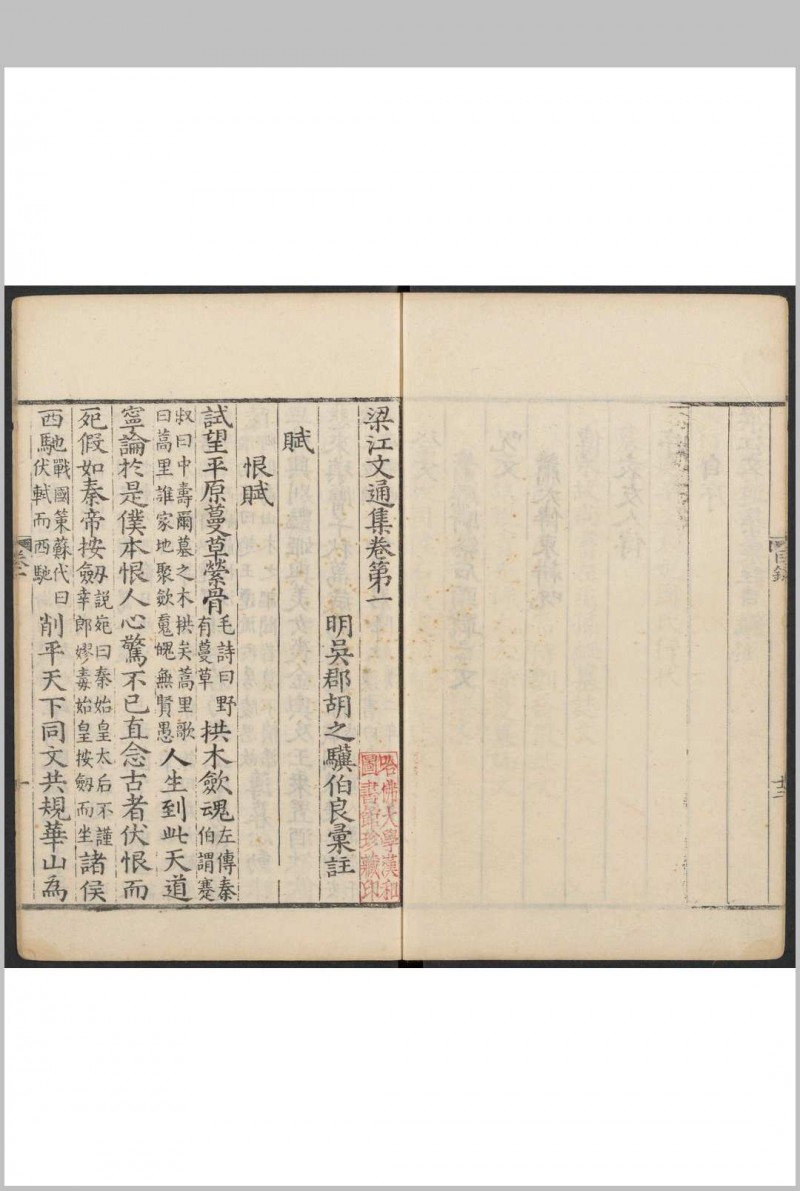 目錄
廿三
梁江文通集卷第一
明吳郡胡之驥伯良彙註
哈佛大學漢和
圖書館珍藏印
賦
恨賦
試望平原蔓草縈骨毛詩曰野有蔓草拱木斂魂左傳秦伯謂蹇
叔曰中壽爾墓之木拱矣蒿里歌曰蒿里誰家地聚斂魂魄無賢愚人生到此天道
寧論於是僕本恨人心驚不已直念古者伏恨而
死假如秦帝按劒說苑曰秦始皇太后不謹幸郎嫪毐始皇按劒而坐諸侯
西馳戰國策蘇代曰伏軾而西馳削平天下同文共規華山爲
卷一
一